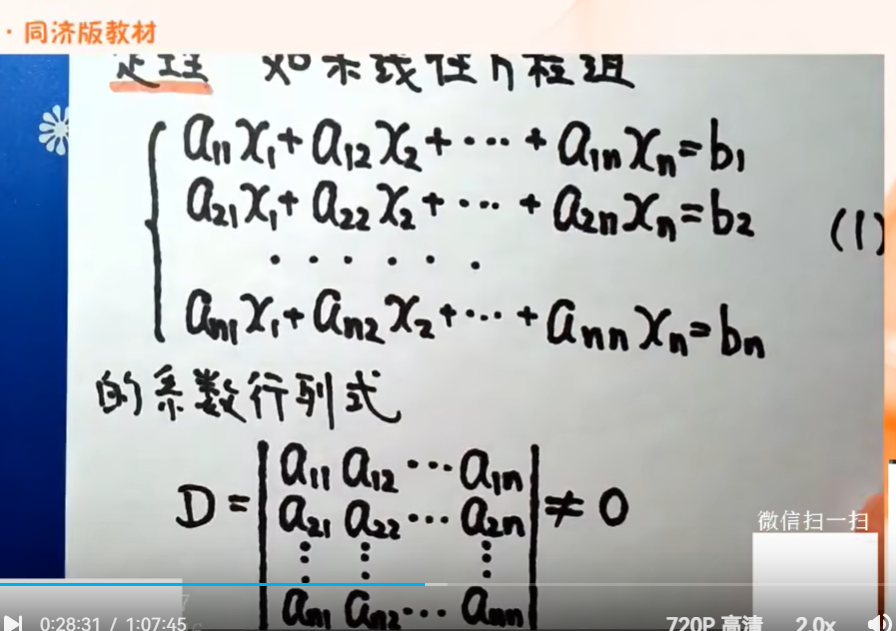 · 同济版教材
定理 如果线性方程组
a₁₁x₁+a₁₂x₂+⋯+a₁ₙxₙ=b₁
a₂₁x₁+a₂₂x₂+⋯+a₂ₙxₙ=b₂ (1)
· · · · · ·
aₙ₁x₁+aₙ₂x₂+⋯+aₙₙxₙ=bₙ
的系数行列式
a₁₁ a₁₂ ⋯ a₁ₙ
D = a₂₁ a₂₂ ⋯ a₂ₙ ≠ 0
⋮ ⋮ ⋮
aₙ₁ aₙ₂ ⋯ aₙₙ
微信扫一扫
0:28:31 / 1:07:45 720P 高清 2.0x